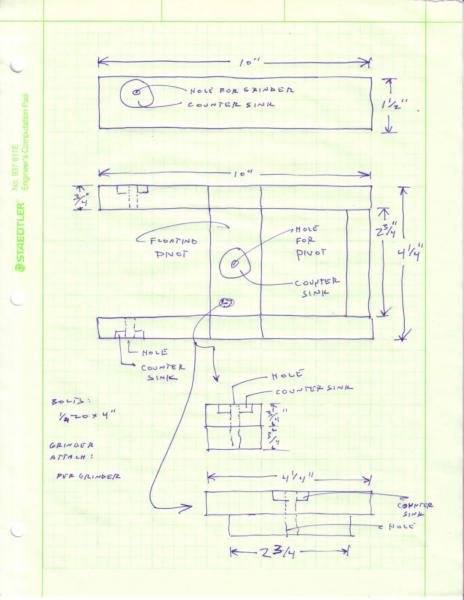 10"
HOLE FOR GRINDER
COUNTER SINK
1 1/2"
10"
3/4"
FLOATING
PIVOT
HOLE
FOR
PIVOT
COUNTER
SINK
2 3/4"
4 1/4"
HOLE
COUNTER
SINK
HOLE
COUNTERSINK
BOLTS:
1/4-20 x 4"
3/4"
3/4"
GRINDER
ATTACH:
PER GRINDER
4 1/4"
COUNTER
SINK
HOLE
2 3/4
STAEDTLER
No. 937 811E
Engineer's Computation Pad